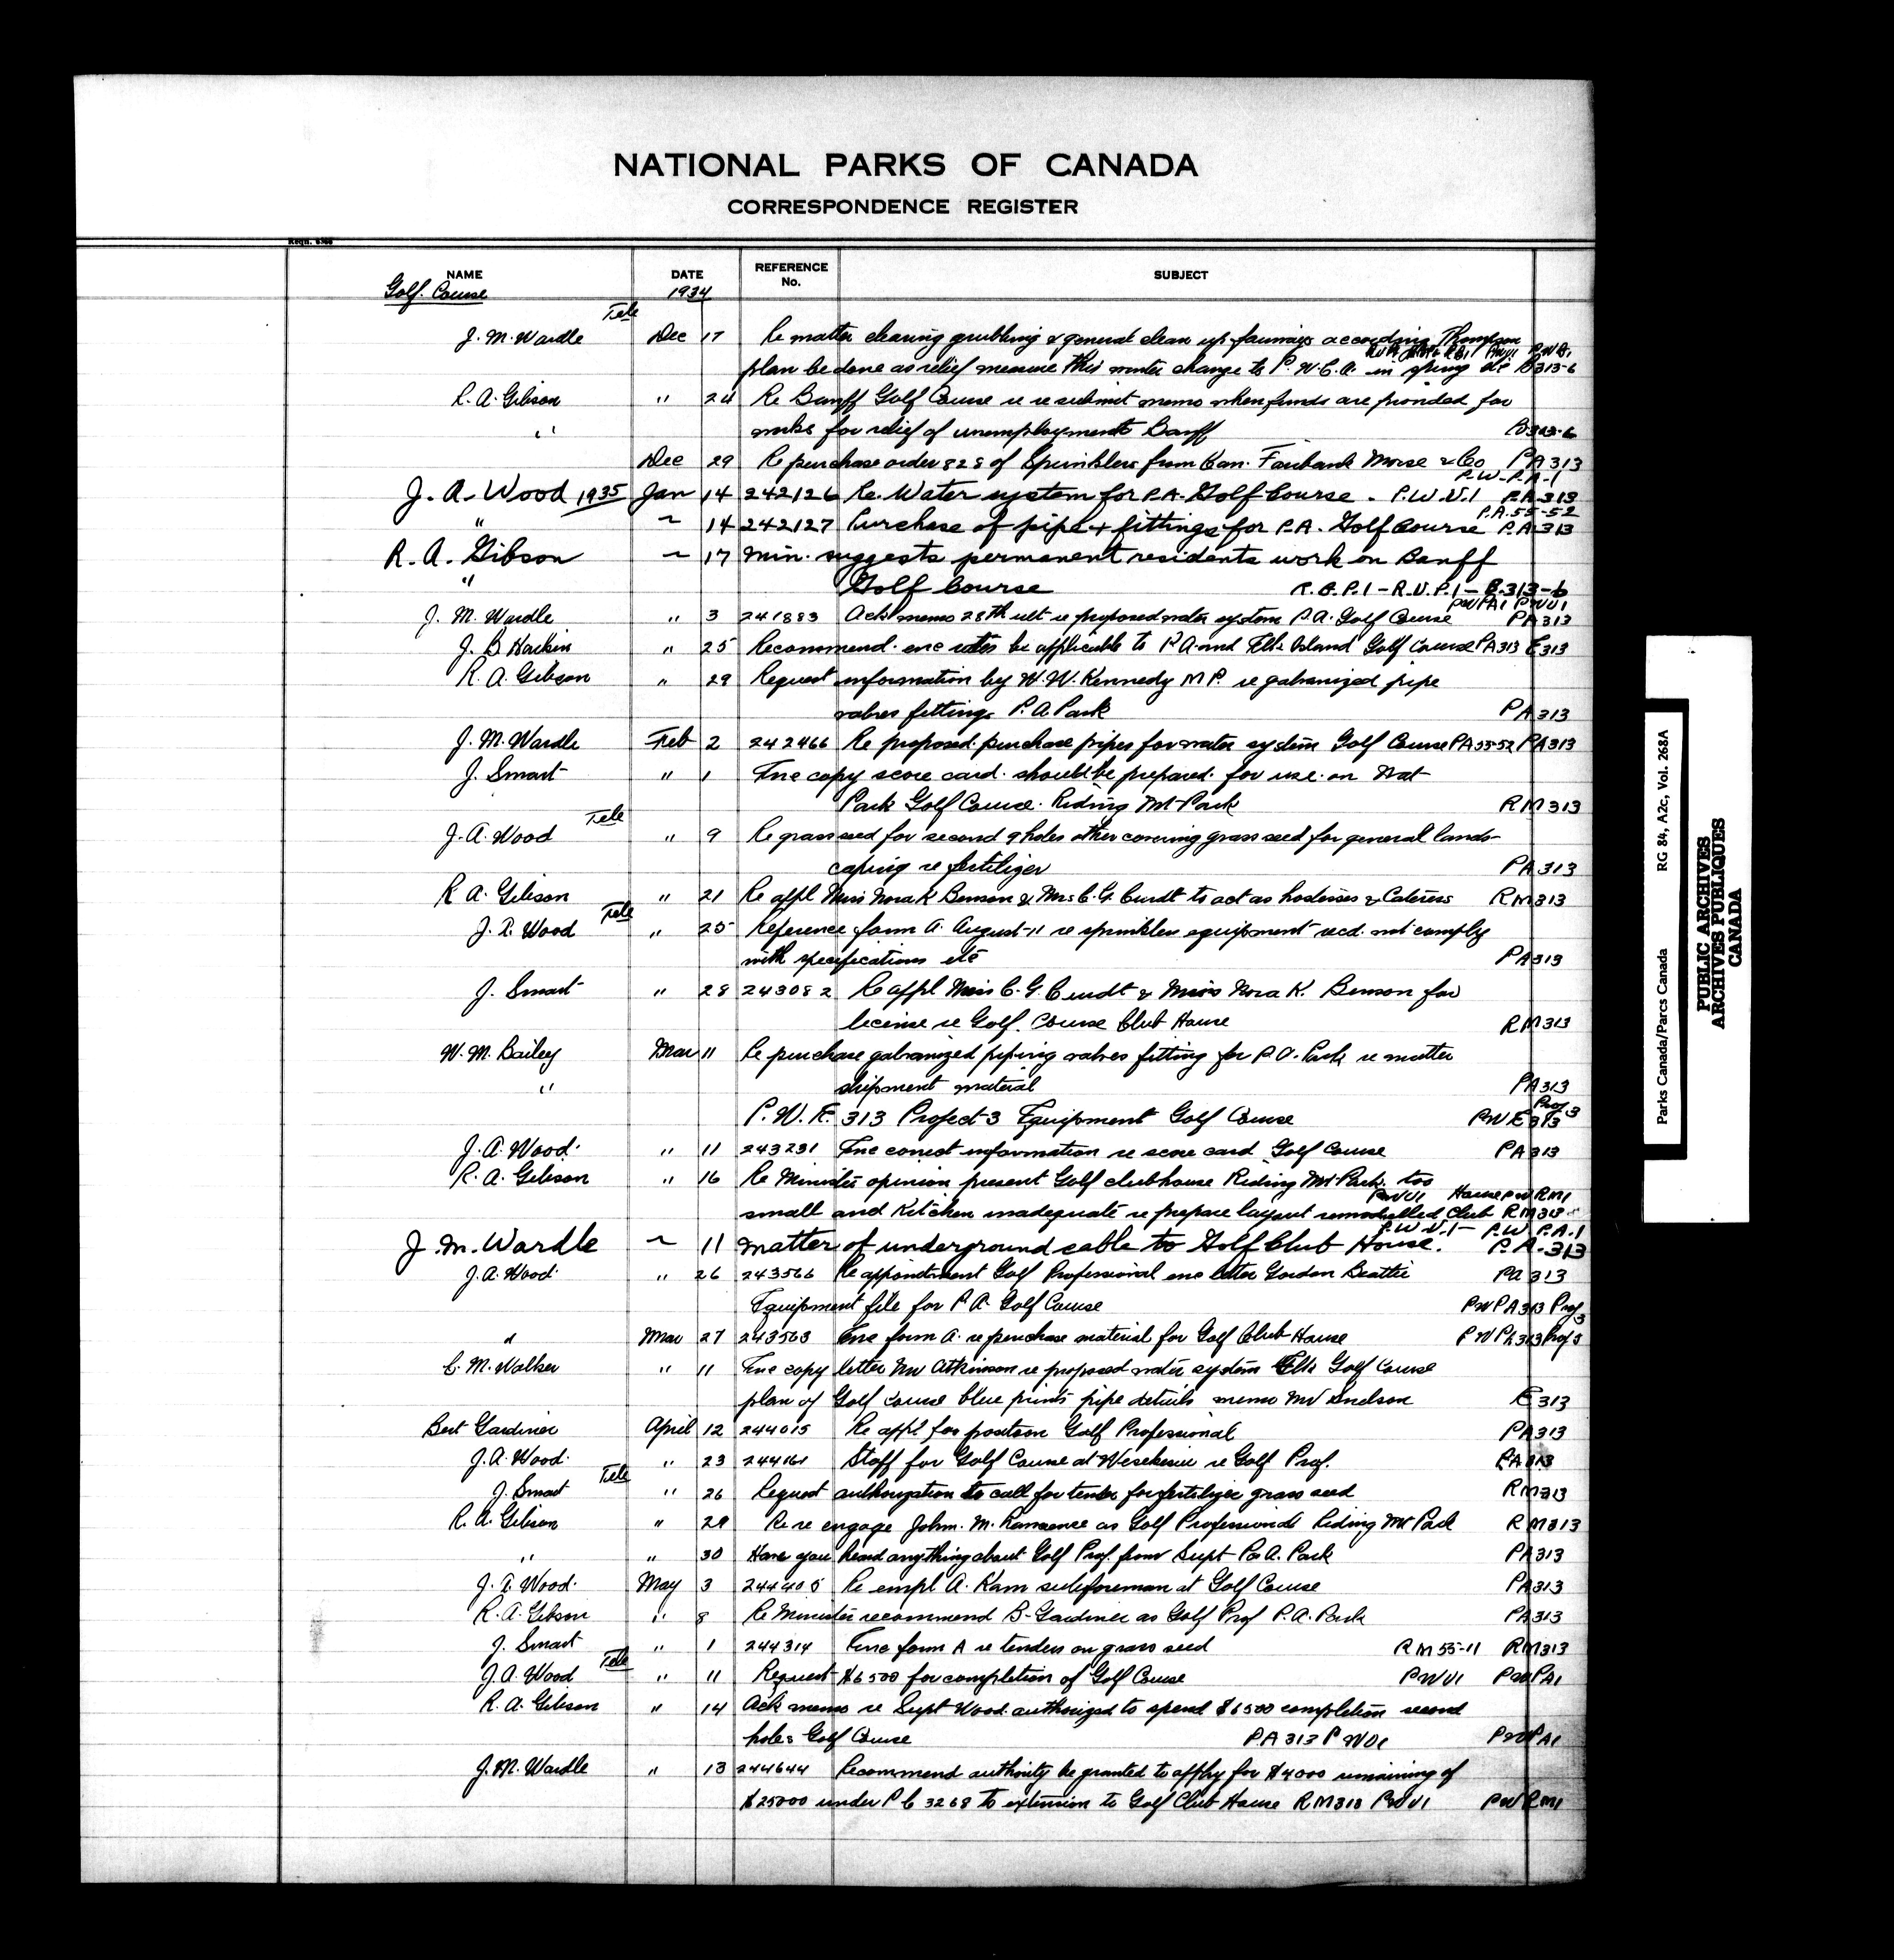 NATIONAL PARKS OF CANADA
CORRESPONDENCE REGISTER
Reqn. 6366
NAME DATE REFERENCE No. SUBJECT
Golf. Course 1934
Tele
J. M. Wardle Dec 17 Re matter clearing grubbing & general clean up fairways according Thompson
plan be done as relief measure this winter change to P.W.C.A. in spring etc B313-6
R. A. Gibson " 24 Re Banff Golf Course re resubmit memo when funds are provided for
" works for relief of unemployment Banff B313-6
Dec 29 Re purchase order 828 of Sprinklers from Can. Fairbank Morse & Co PA313
P.W.P.A-1
J. A. Wood 1935 Jan 14 242126 Re. Water system for P.A. Golf Course - P.W.V.1 P.A.313
P.A.55-52
" ~ 14 242127 Purchase of pipe + fittings for P.A. Golf Course P.A.313
R. A. Gibson ~ 17 Min. suggests permanent residents work on Banff
" Golf Course R.B.P.1 - R.U.P.1 - B.313-6
PWPA1 PWU1
J. M. Wardle " 3 241883 Ack memo 28th ult re proposed water system P.A. Golf Course PA313
J. B. Harkin " 25 Recommend. enc rates be applicable to P.A. and Elk Island Golf Course PA313 E313
R. A. Gibson " 29 Request information by W. W. Kennedy M P. re galvanized pipe
valves fittings P. A Park PA313
J. M. Wardle Feb 2 242466 Re proposed purchase pipes for water system Golf Course PA55-52 PA313
J. Smart " 1 Enc copy score card should be prepared for use on Nat
Park Golf Course. Riding Mt Park RM313
Tele
J. A. Wood " 9 Re grass seed for second 9 holes other covering grass seed for general lands-
caping re fertilizer PA313
R A. Gibson " 21 Re appl Miss Nora K Benson & Mrs C. G. Cundt to act as hostesses & Caterers RM313
Tele
J. A. Wood " 25 Reference form A. August 11 re sprinkler equipment recd. not comply
with specifications etc PA313
J. Smart " 28 243082 Re appl Miss C. G. Cundt & Miss Nora K. Benson for
license re Golf. Course Club House RM313
W. M. Bailey Mar 11 Re purchase galvanized piping valves fitting for P. A. Park re matter
" shipment material PA313
P. W. E. 313 Project 3 Equipment Golf Course PWE313 Proj 3
J. A. Wood " 11 243231 Enc correct information re score card Golf Course PA313
R. A. Gibson " 16 Re Minister opinion present Golf clubhouse Riding Mt Park. too
PWU1 House PWRM1
small and Kitchen inadequate re prepare layout remodelled Club RM313
P.W.V.1 - P.W.P.A.1
J. M. Wardle ~ 11 matter of underground cable to Golf Club House. P.A.313
J. A. Wood " 26 243566 Re appointment Golf Professional enc letter Gordon Beattie PA313
Equipment file for P A. Golf Course PWPA313 Proj 3
" Mar 27 243563 Enc form A. re purchase material for Golf Club House PWPA313 Proj 3
C. M. Walker " 11 Enc copy letter Mr Atkinson re proposed water system Elk Golf Course
plan of Golf course blue prints pipe details memo Mr E313
Bert Gardiner April 12 244015 Re appl for position Golf Professional PA313
J. A. Wood " 23 244161 Staff for Golf Course at Weskesiu re Golf Prof. PA313
Tele
J. Smart " 26 Request authorization to call for tender for fertilizer grass seed RM313
R. A. Gibson " 29 Re re engage John. M. as Golf Professional Riding Mt Park RM313
" " 30 Have you heard anything about Golf Prof. from Supt P. A. Park PA313
J. A. Wood May 3 244405 Re empl A. Kam subforeman at Golf Course PA313
R. A. Gibson " 8 Re Minister recommend B. Gardiner as Golf Prof P.A. Park PA313
J. Smart " 1 244314 Enc form A re tenders on grass seed RM55-11 RM313
Tele
J. A. Wood " 11 Request $6500 for completion of Golf Course PWU1 PWPA1
R. A. Gibson " 14 Ack memo re Supt Wood authorized to spend $6500 completion second
holes Golf Course PA313 PWU1 PWPA1
J. M. Wardle " 13 244644 Recommend authority be granted to apply for $4000 remaining of
$25000 under P C 3268 to extension to Golf Club House RM313 PWU1 PWRM1
Parks Canada/Parcs Canada RG 84, A2c, Vol. 268A
PUBLIC ARCHIVES
ARCHIVES PUBLIQUES
CANADA